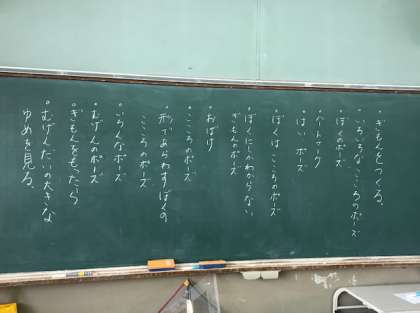 。ぎもんをつくる。
。いろいろなこころのポーズ
。ぼくのポーズ
。ハートマーク
。はいポーズ
。ぼくはこころのポーズ
。ぼくにしかわからない、
ぎもんのポーズ
。おばけ
。こころのポーズ
。形であらわすぼくの
こころのポーズ
。いろんなポーズ
。むげんのポーズ
。ぎもんをもったら
。むげんだいの大きな
ゆめを見る。